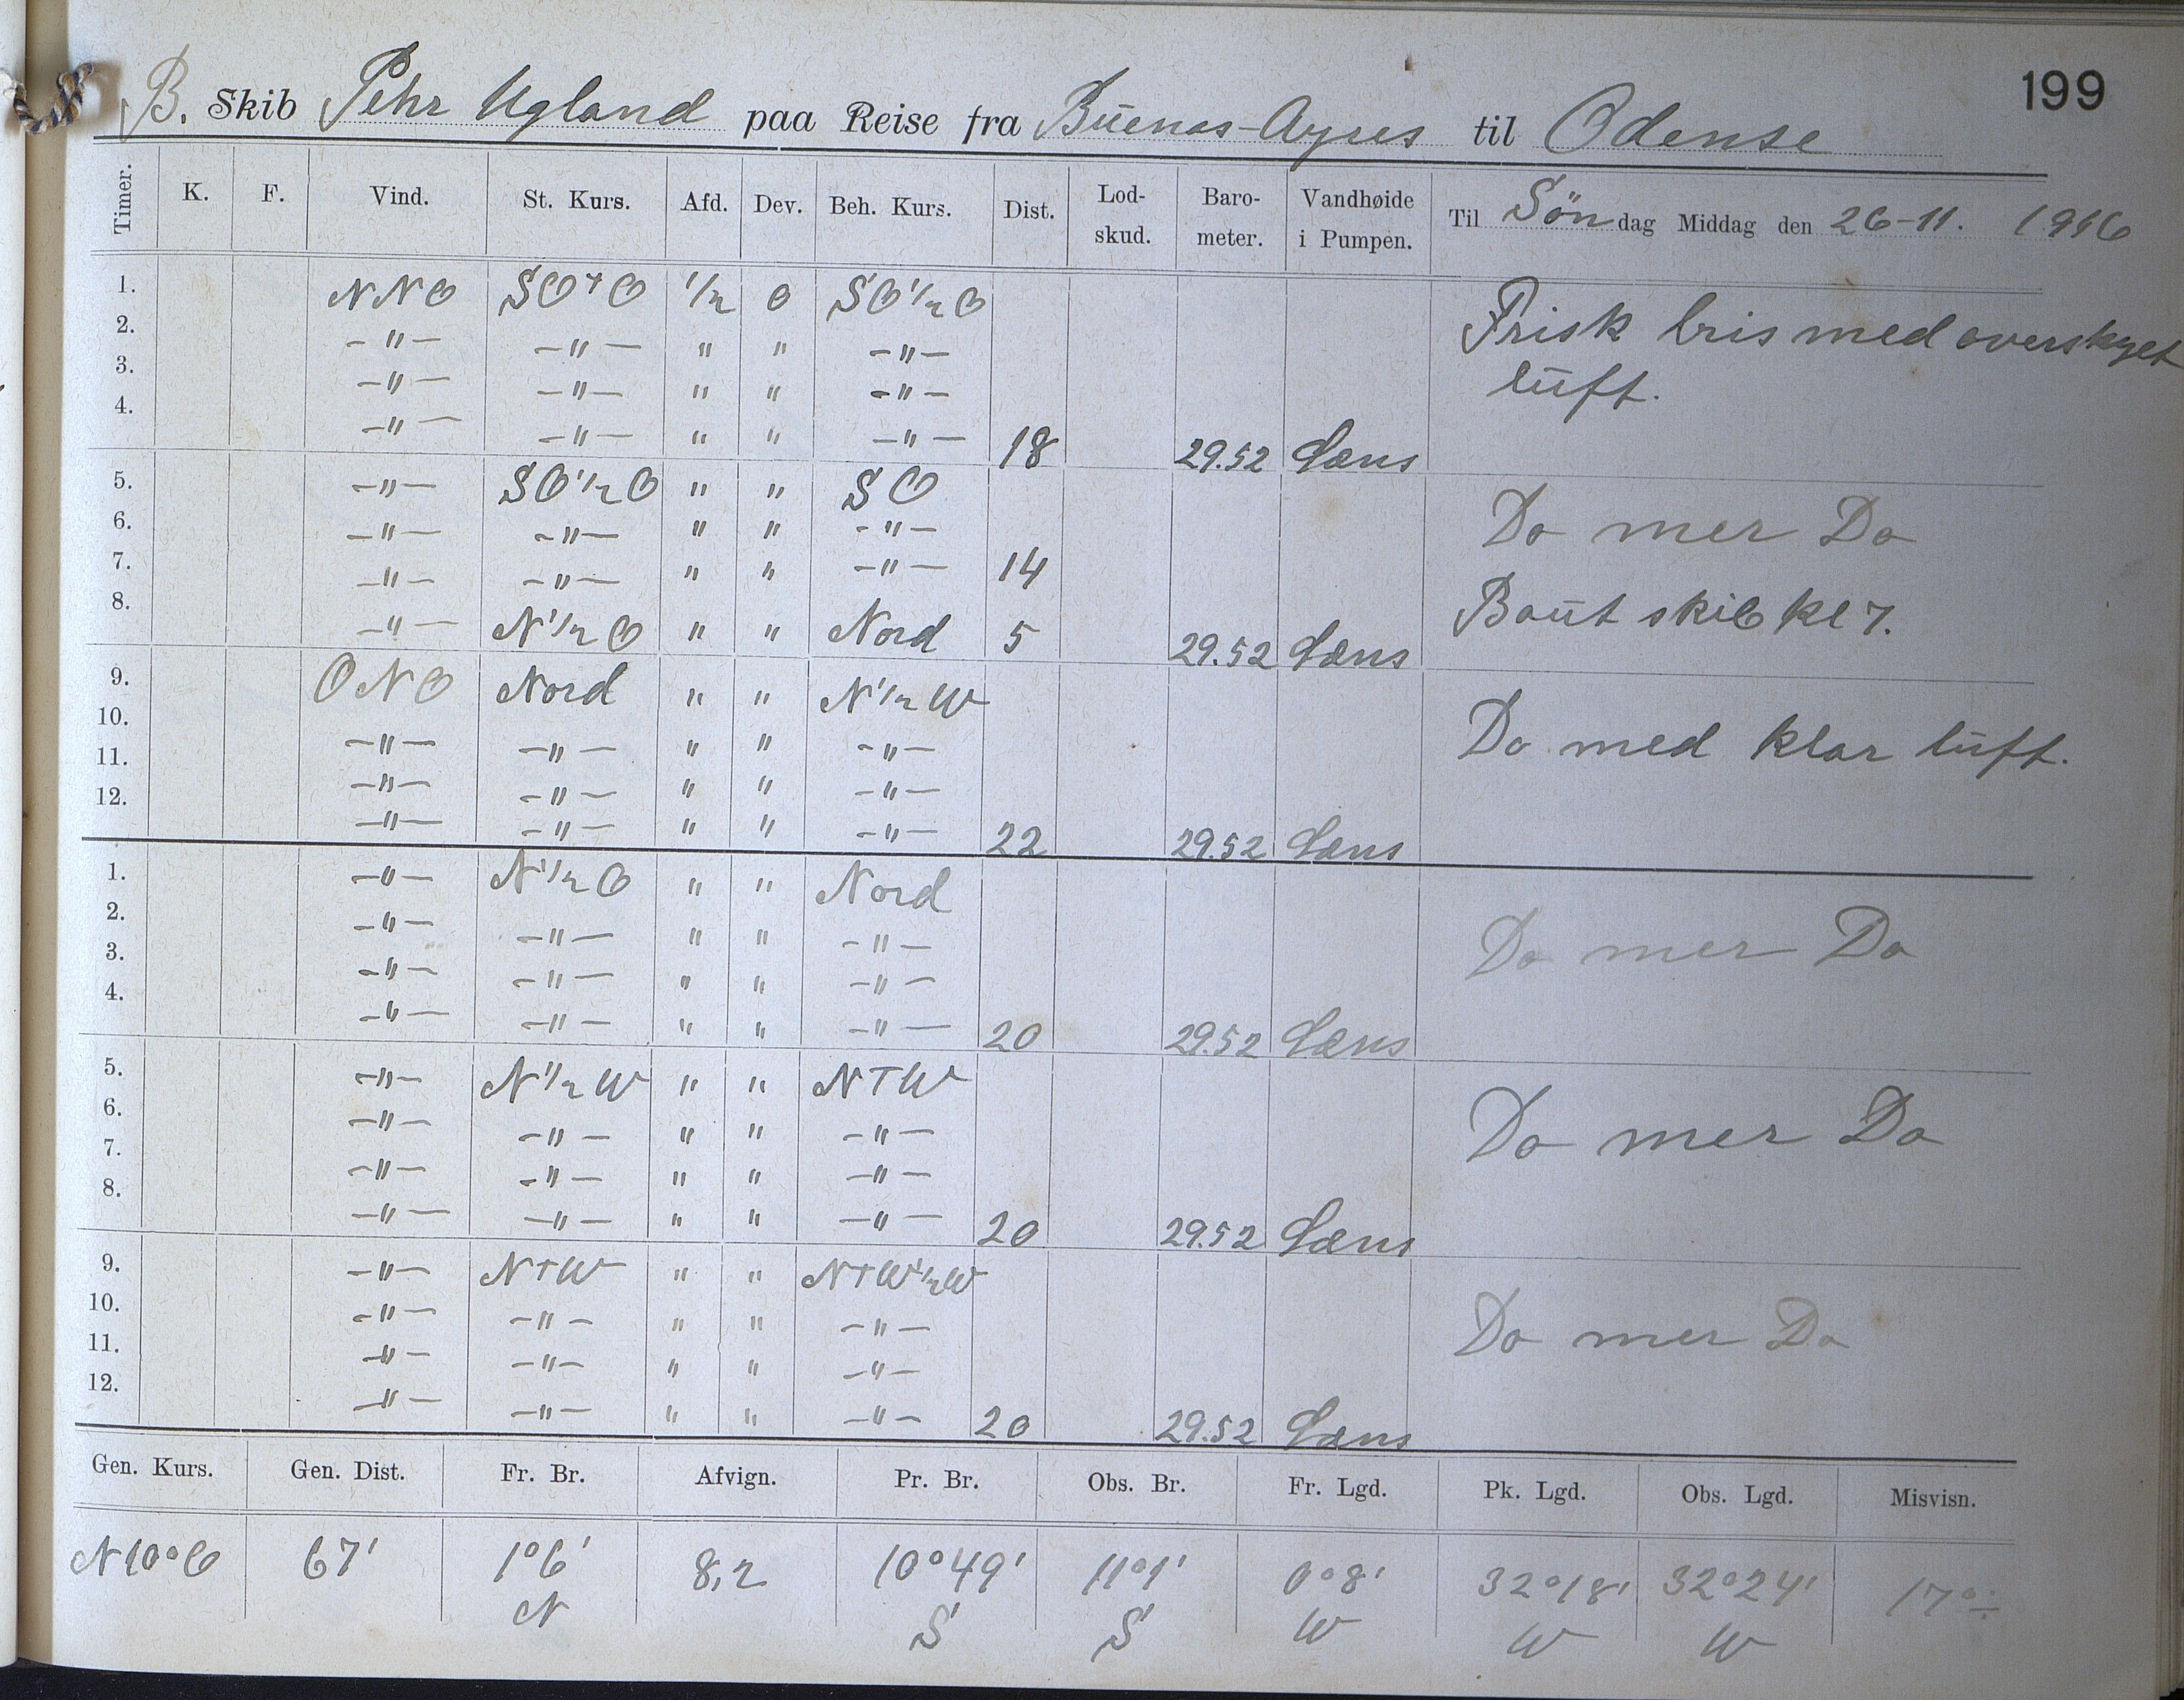 199
B. Skib Pehr Ugland paa Reise fra Buenos-Ayres til Odense
Timer. K. F. Vind. St. Kurs. Afd. Dev. Beh. Kurs. Dist. Lod-skud. Baro-meter. Vandhøide i Pumpen. Til Søndag Middag den 26-11. 1916
1. NNO SO+O 1/2 0 SO1/2O Frisk bris med overskyet
2. -"- -"- " " -"-
3. -"- -"- " " -"- luft.
4. -"- -"- " " -"- 18 29.52 Læns
5. -"- SO1/2O " " SO
6. -"- -"- " " -"- Do mer Do
7. -"- -"- " " -"- 14
8. -"- N1/2O " " Nord 5 29.52 Læns Baut skib kl 7.
9. ONO Nord " " N1/2W
10. -"- -"- " " -"- Do med klar luft.
11. -"- -"- " " -"-
12. -"- -"- " " -"- 22 29.52 Læns
1. -"- N1/2O " " Nord
2. -"- -"- " " -"- Do mer Do
3. -"- -"- " " -"-
4. -"- -"- " " -"- 20 29.52 Læns
5. -"- N1/2W " " N+W
6. -"- -"- " " -"- Do mer Do
7. -"- -"- " " -"-
8. -"- -"- " " -"- 20 29.52 Læns
9. -"- N+W " " N+W1/2W
10. -"- -"- " " -"- Do mer Do
11. -"- -"- " " -"-
12. -"- -"- " " -"- 20 29.52 Læns
Gen. Kurs. Gen. Dist. Fr. Br. Afvign. Pr. Br. Obs. Br. Fr. Lgd. Pk. Lgd. Obs. Lgd. Misvisn.
N10°O 67' 1°6' 8,2 10°49' 11°1' 0°8' 32°18' 32°24' 17°÷
N S S W W W